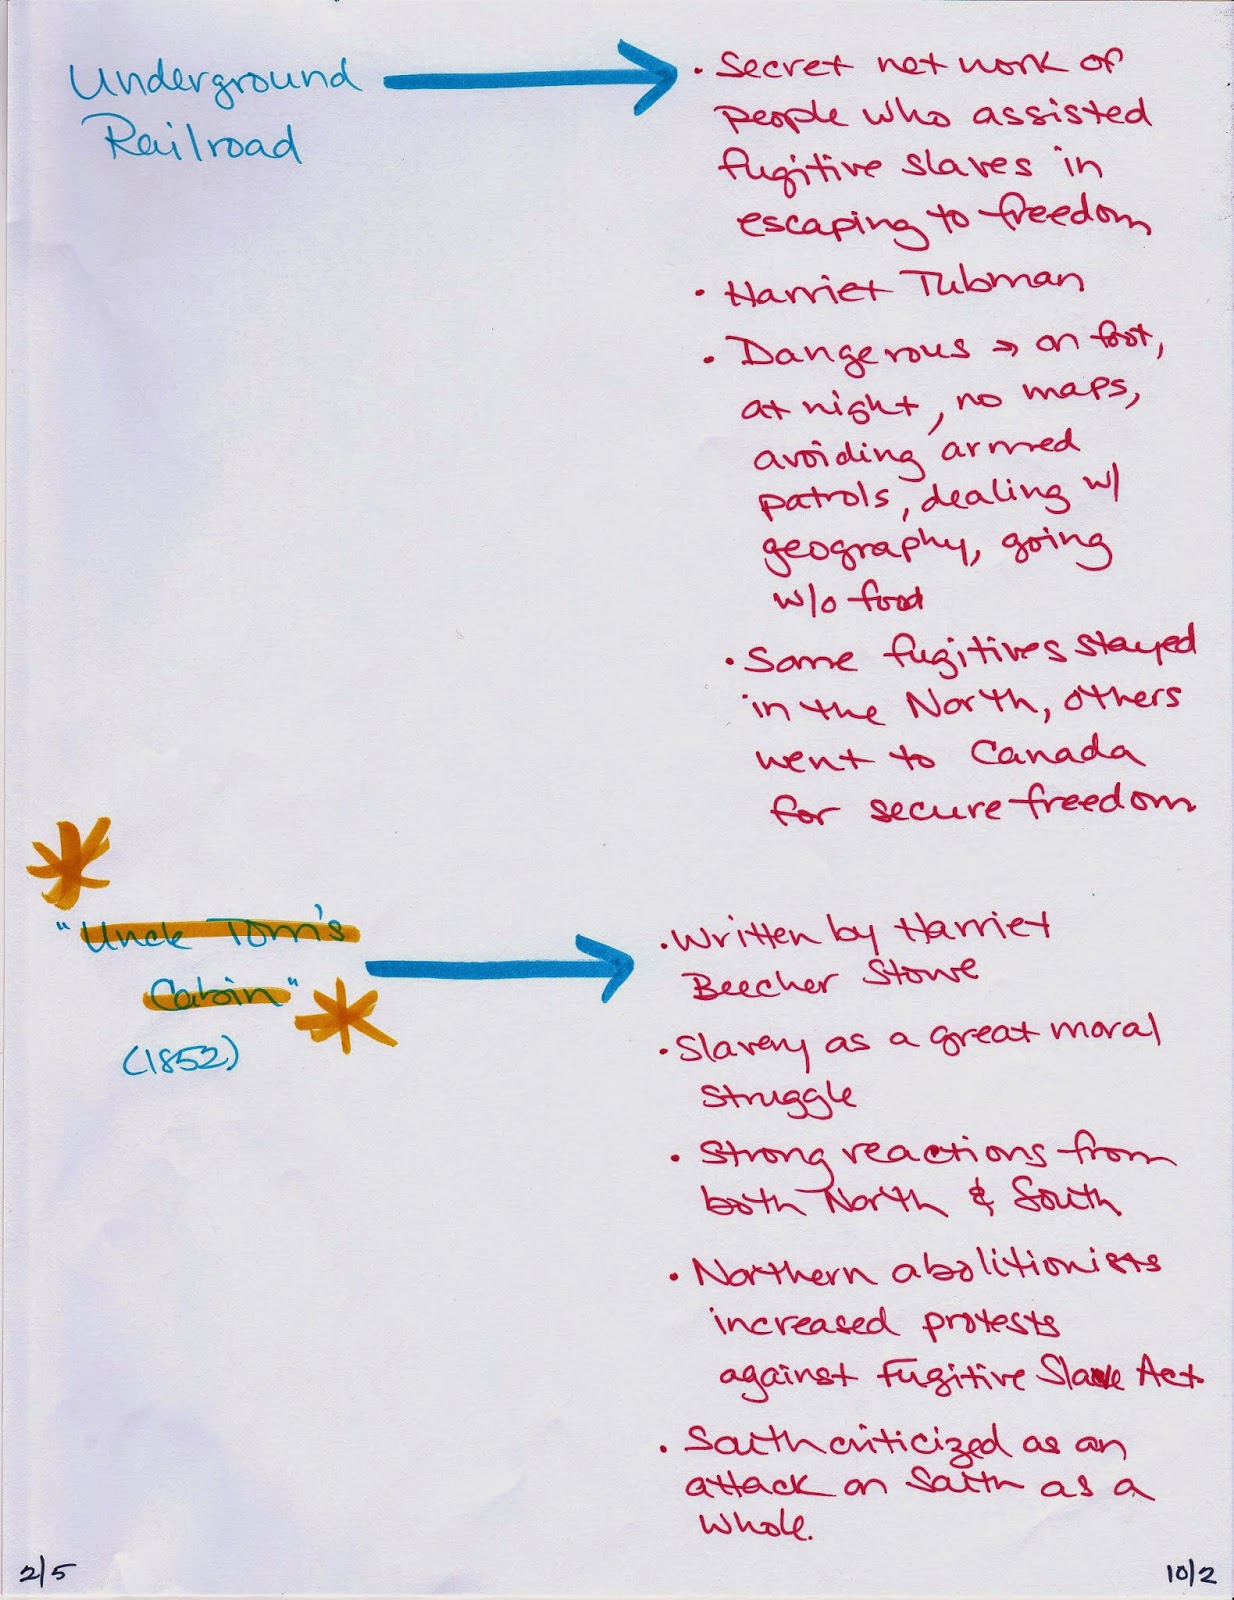 Underground
Railroad
· Secret network of
people who assisted
fugitive slaves in
escaping to freedom
· Harriet Tubman
· Dangerous → on foot,
at night, no maps,
avoiding armed
patrols, dealing w/
geography, going
w/o food
· Some fugitives stayed
in the North, others
went to Canada
for secure freedom
"Uncle Tom's
Cabin"
(1852)
· Written by Harriet
Beecher Stowe
· Slavery as a great moral
struggle
· Strong reactions from
both North & South
· Northern abolitionists
increased protests
against Fugitive Slave Act
· South criticized as an
attack on South as a
whole.
2/5
10/2